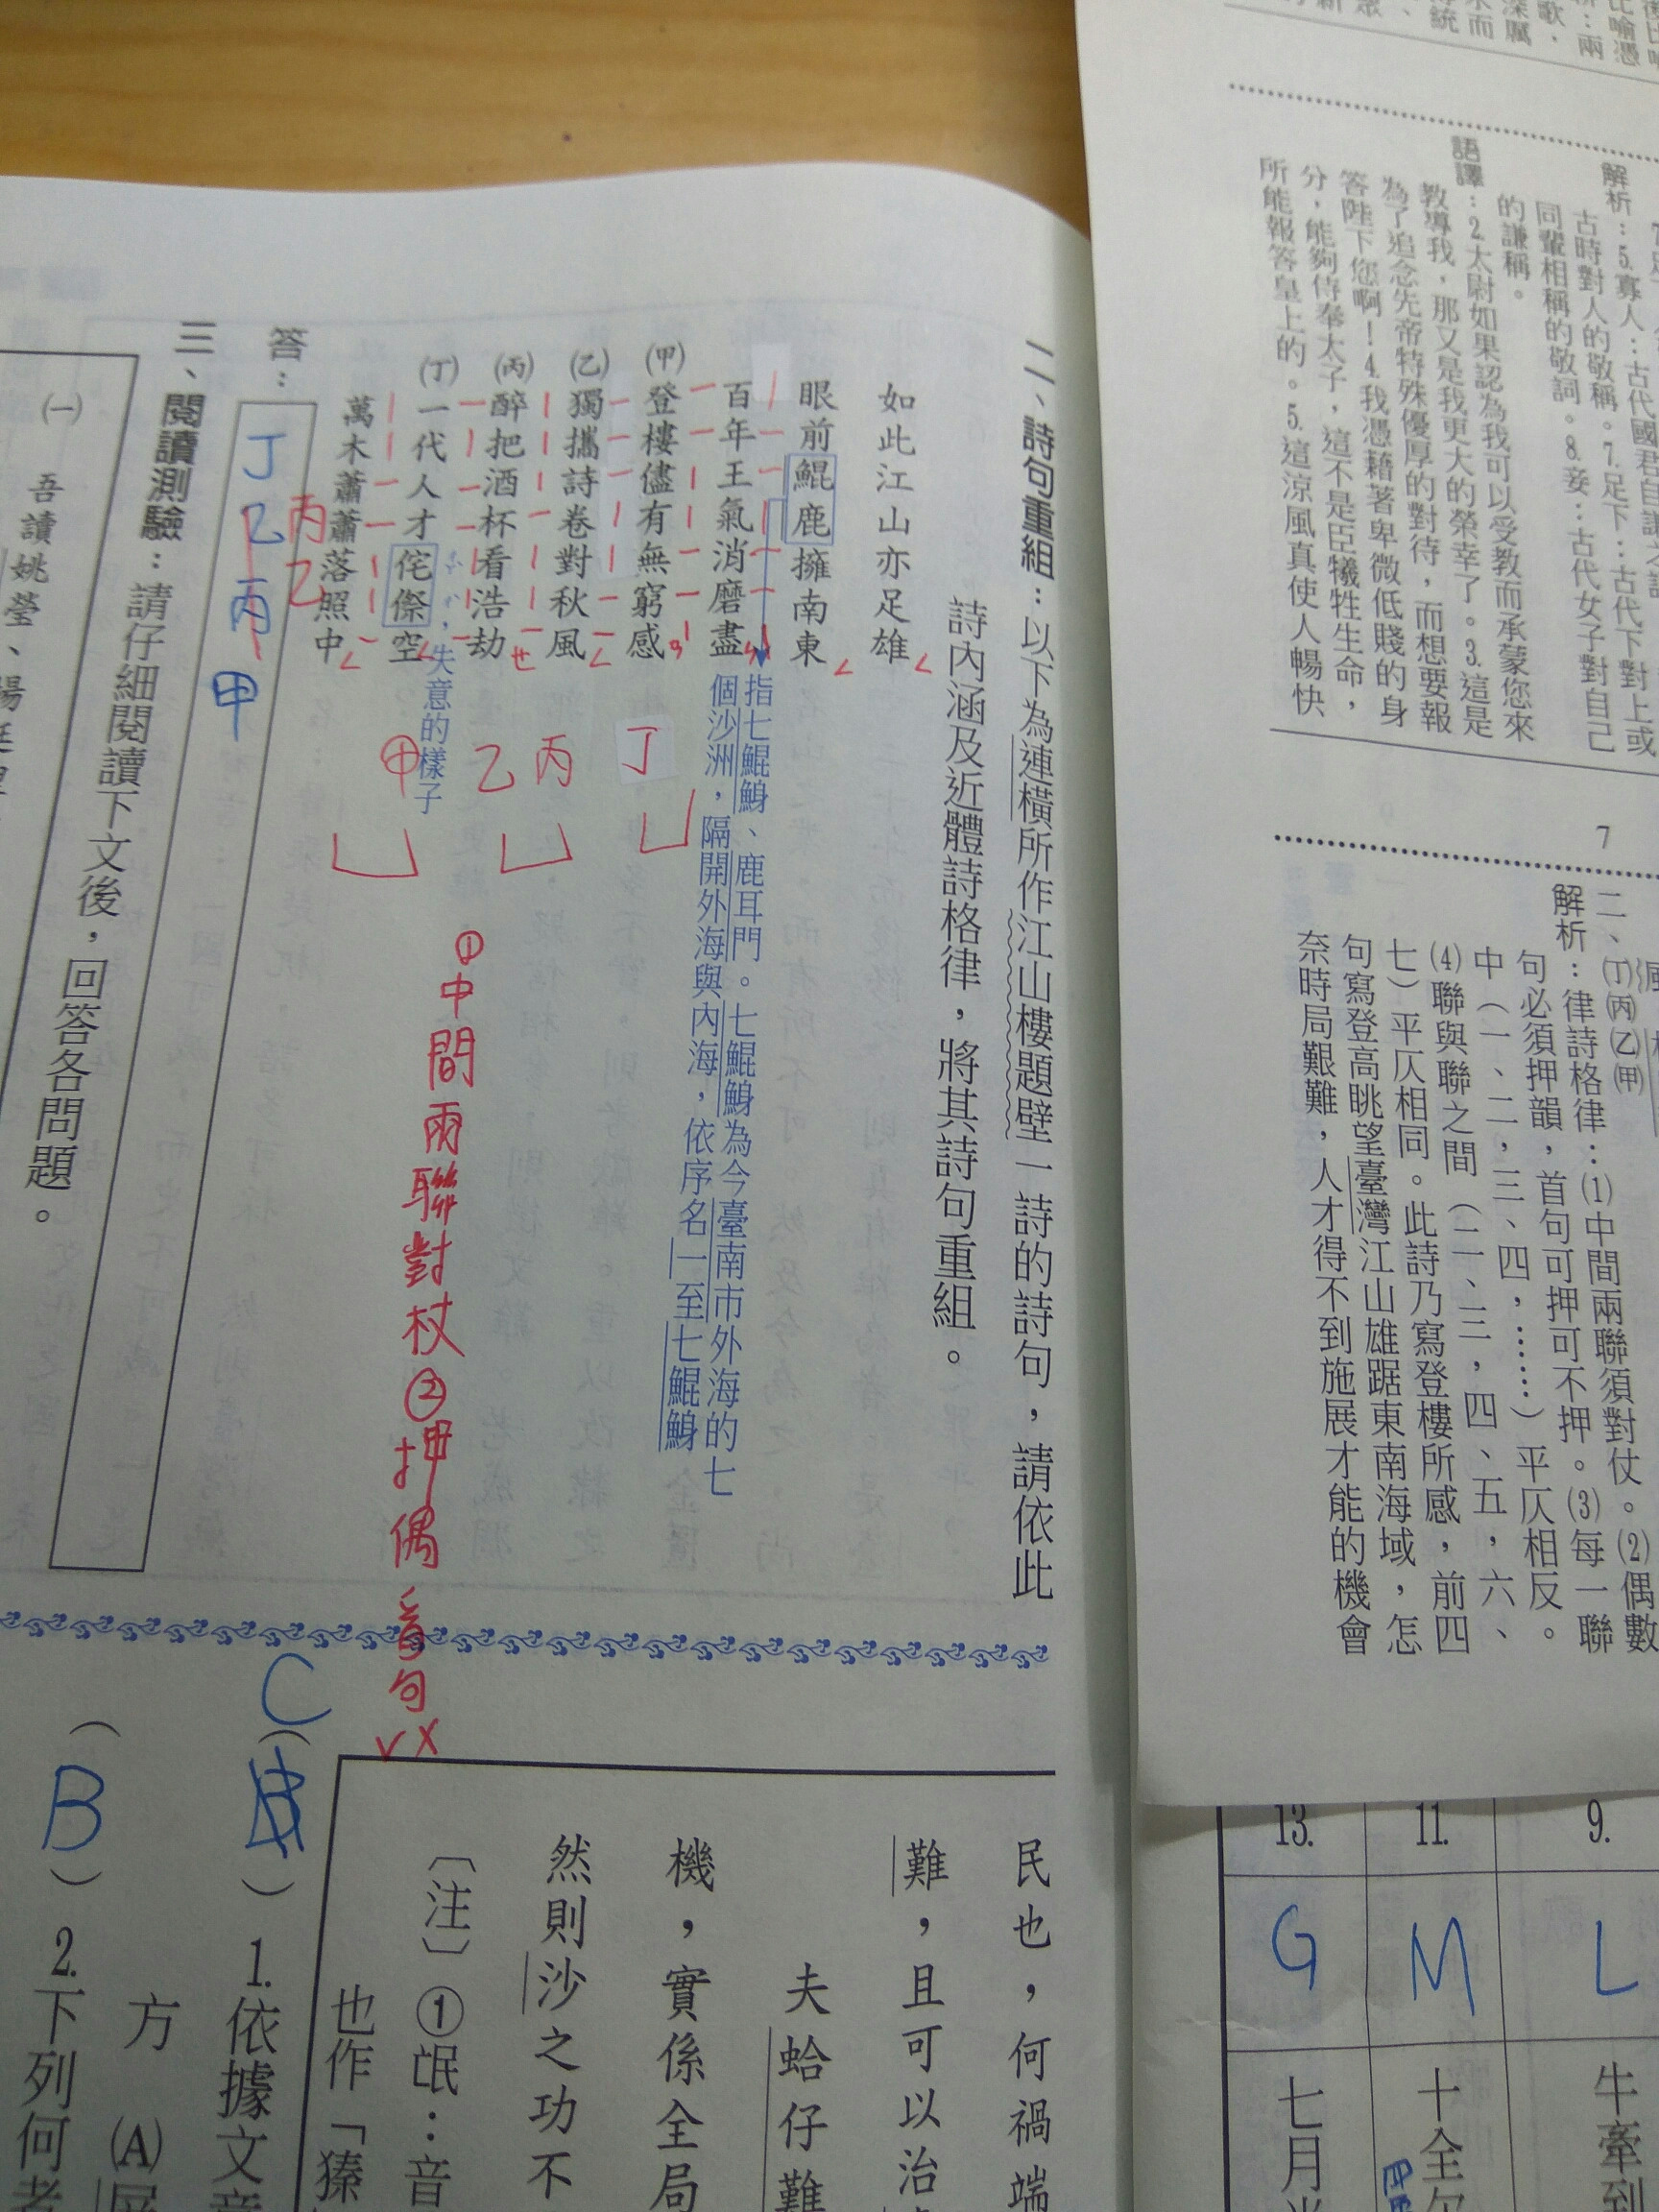 解析：5.寡人：古代國君自謙之詞
古時對人的敬稱。7.足下：古代下對上或
同輩相稱的敬詞。8.妾：古代女子對自己
的謙稱。
語譯：2.太尉如果認為我可以受教而承蒙您來
教導我，那又是我更大的榮幸了。3.這是
為了追念先帝特殊優厚的對待，而想要報
答陛下您啊！4.我憑藉著卑微低賤的身
分，能夠侍奉太子，這不是臣犧牲生命，
所能報答皇上的。5.這涼風真使人暢快
7
二、(丁)(丙)(乙)(甲)
解析：律詩格律：(1)中間兩聯須對仗。(2)偶數
句必須押韻，首句可押可不押。(3)每一聯
中（一、二，三、四，……）平仄相反。
(4)聯與聯之間（二、三，四、五，六、
七）平仄相同。此詩乃寫登樓所感，前四
句寫登高眺望臺灣江山雄踞東南海域，怎
奈時局艱難，人才得不到施展才能的機會
二、詩句重組：以下為連橫所作江山樓題壁一詩的詩句，請依此
詩內涵及近體詩格律，將其詩句重組。
如此江山亦足雄
眼前鯤鹿擁南東
指七鯤鯓、鹿耳門。七鯤鯓為今臺南市外海的七
個沙洲，隔開外海與內海，依序名一至七鯤鯓
百年王氣消磨盡
(甲)登樓儘有無窮感
丁
(乙)獨攜詩卷對秋風
丙
(丙)醉把酒杯看浩劫
乙
(丁)一代人才侘傺空
失意的樣子
甲
萬木蕭蕭落照中
①中間兩聯對杖②押偶首句
答：
丁乙丙甲
丙乙
三、閱讀測驗：請仔細閱讀下文後，回答各問題。
(一)
吾讀姚瑩、
民也，何禍端
難，且可以治
夫蛤仔難
機，實係全局
然則沙之功不
〔注〕①氓：音
也作「獉
C
( ) 1.依據文意
方
(A)
( B ) 2.下列何者
9.
L
牛牽到
11.
M
十全
13.
G
七月